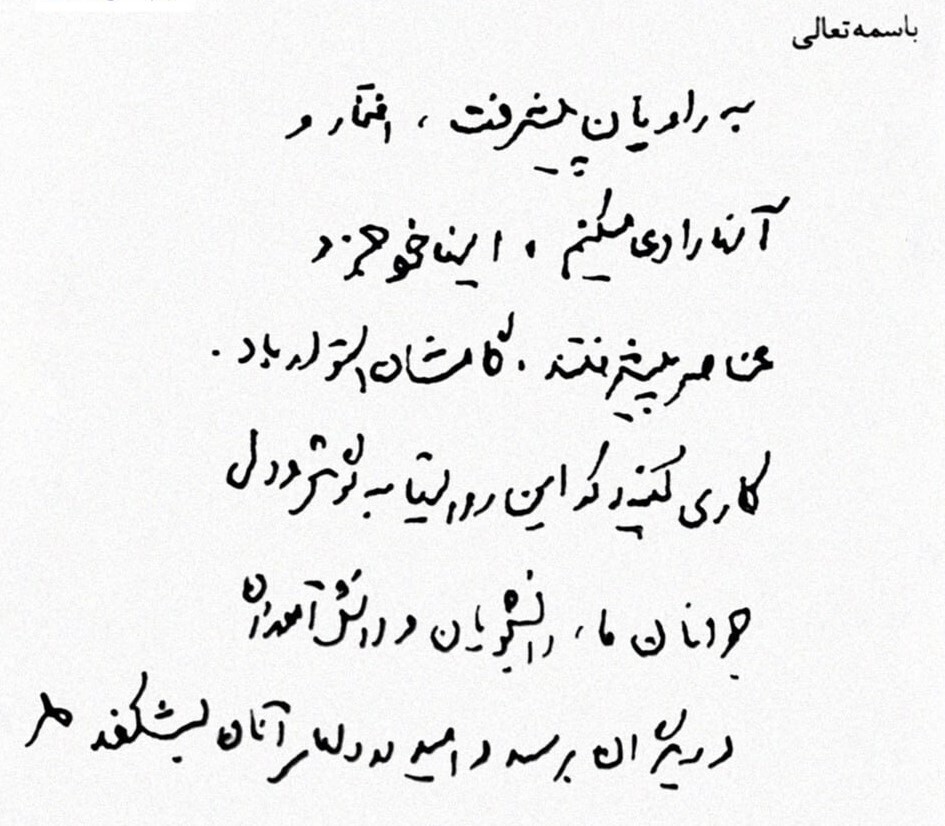 باسمه تعالی
به راویان پیشرفت، افتخار و
آنها را دعا میکنم، اینها خود جزو
عناصر پیشرفتند. گامشان استوار باد.
کاری کنید که این روایتها به گوش و دل
جوانان ما، دانشجویان و دانش‌آموزان
دیگران برسد و امید در دلهای آنان بشکفد